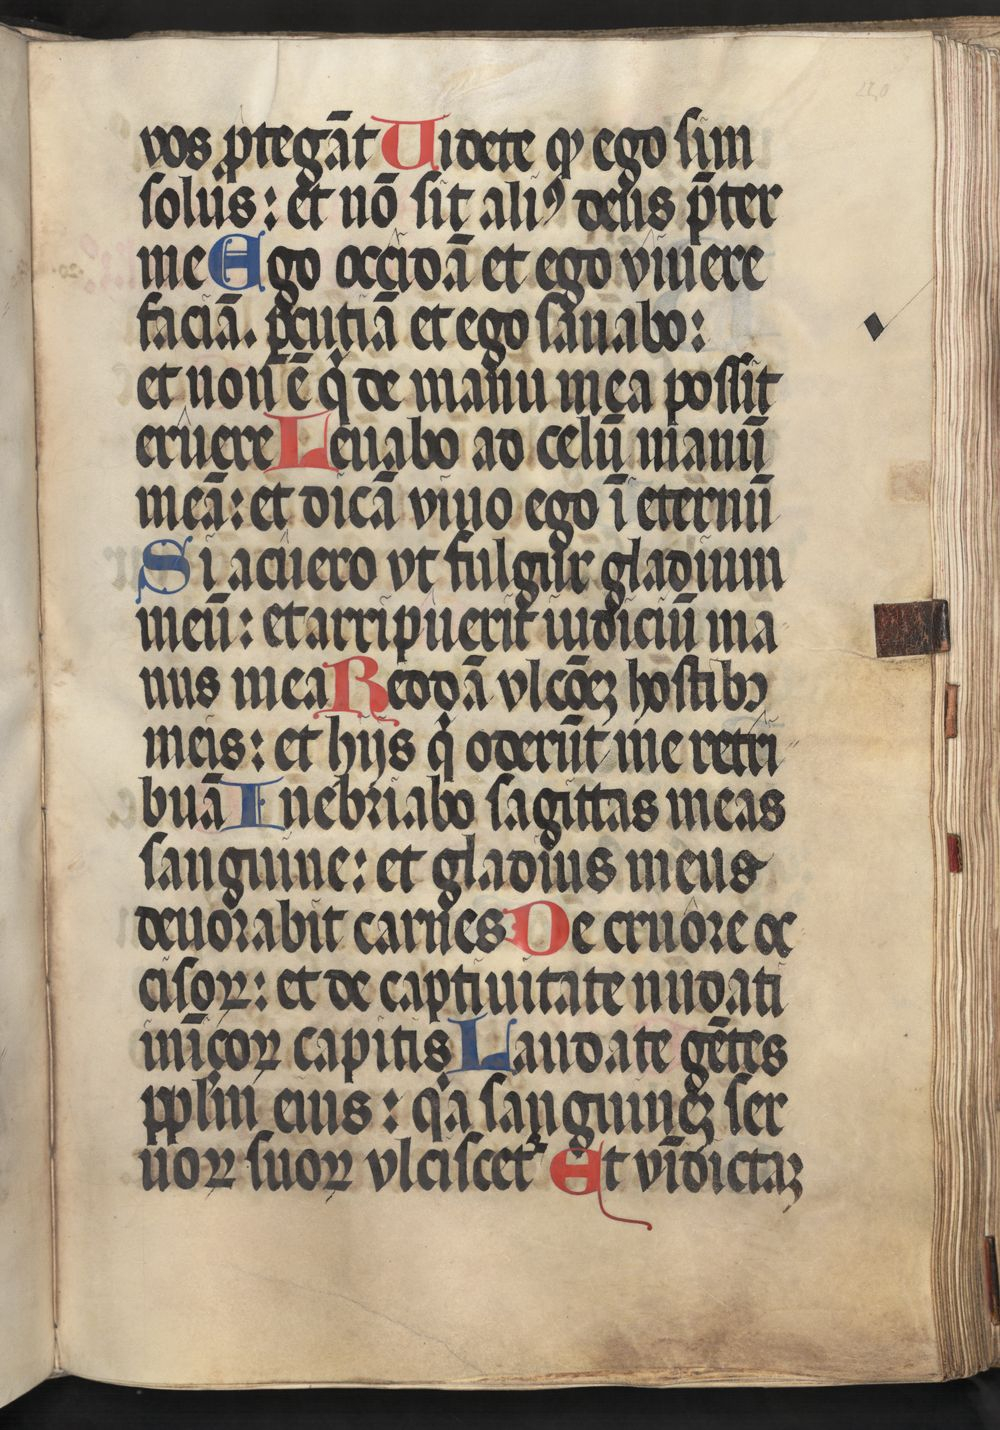 vos ꝓtegāt Uidete ꝙ ego sim
solus : et nō sit aliꝰ deus p̄ter
me Ego occidā et ego viuere
faciā. ꝑcutiā et ego sanabo :
et non ē q̇ de manu mea possit
eruere Leuabo ad celū manū
meā : et dicā viuo ego ī eternū
Si acuero vt fulgur gladium
meū : et arripuerit iudiciū ma
nus mea Reddā vlcōeꝫ hostibꝫ
meis : et hijs q̇ oderūt me retri
buā Inebriabo sagittas meas
sanguine : et gladius meus
deuorabit carnes De cruore oc
cisoꝝ : et de captiuitate nudati
inīcoꝝ capitis Laudate gētes
pplm̄ eius : q̇a sanguineꝫ ser
uoꝝ suoꝝ vlciscet᷑ Et vīdictaꝫ